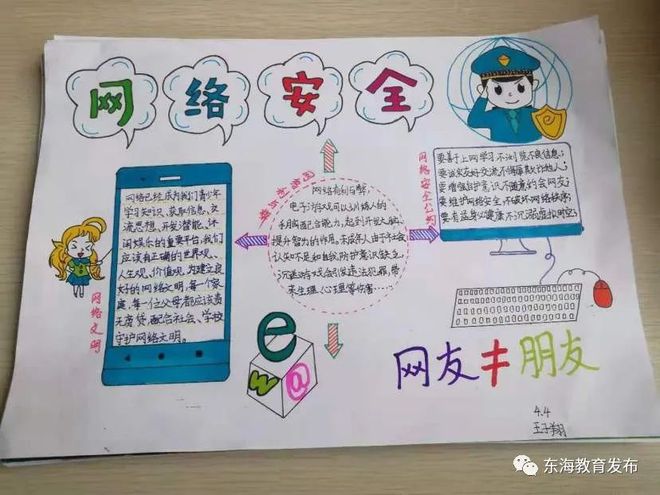 网络安全
网络已经成为我们青少年
学习知识、获取信息、交
流思想、开发潜能、休
闲娱乐的重要平台,我们
应该有正确的世界观、
人生观、价值观,为建立良
好的网络文明,每个家
庭,每一位父母都应该责
无旁贷,配合社会、学校
守护网络文明。
网络文明
网络利与弊
网络有利与弊,
电子游戏可以训练人的
手脑配合能力,起到开发人脑,
提升智力的作用。未成年人由于社会
认知不足,自我防护意识缺乏,
沉迷游戏会促使违法犯罪,带
来生理、心理等伤害……
网络安全公约
要善于上网学习 不浏览不良信息;
要诚实友好交流 不侮辱欺诈他人;
要增强自护意识 不随意约会网友;
要维护网络安全 不破坏网络秩序;
要有益身心健康 不沉溺虚拟时空。
e
w
@
网友≠朋友
4.4
王子翔
东海教育发布